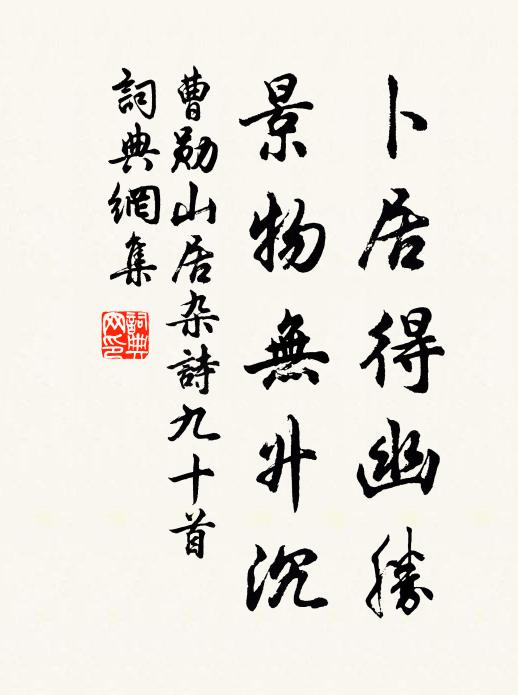 卜居得幽勝
景物無升沉
曹勛山居杂詩九十首
詞典網集
詞典网印